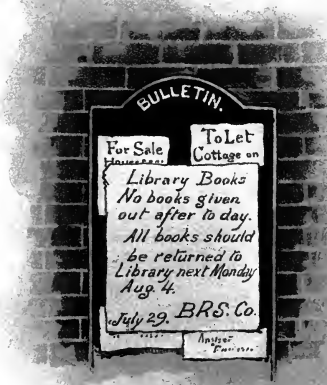 BULLETIN.
For Sale
To Let
Cottage on
Library Books
No books given
out after to day.
All books should
be returned to
Library next Monday
Aug. 4.
July 29. BRS. Co.